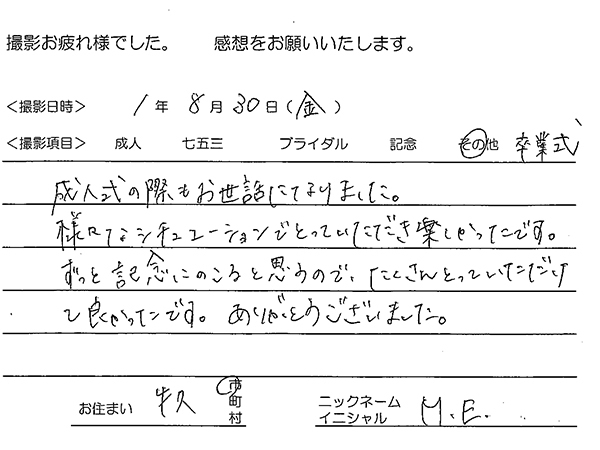 撮影お疲れ様でした。 感想をお願いいたします。
<撮影日時> 1 年 8 月 30 日 (金)
<撮影項目> 成人 七五三 ブライダル 記念 その他 卒業式
成人式の際もお世話になりました。
様々なシチュエーションでとっていただき楽しかったです。
ずっと記念にのこると思うので、たくさんとっていただけ
て良かったです。ありがとうございました。
お住まい 牛久 市町村 ニックネーム イニシャル M.E.